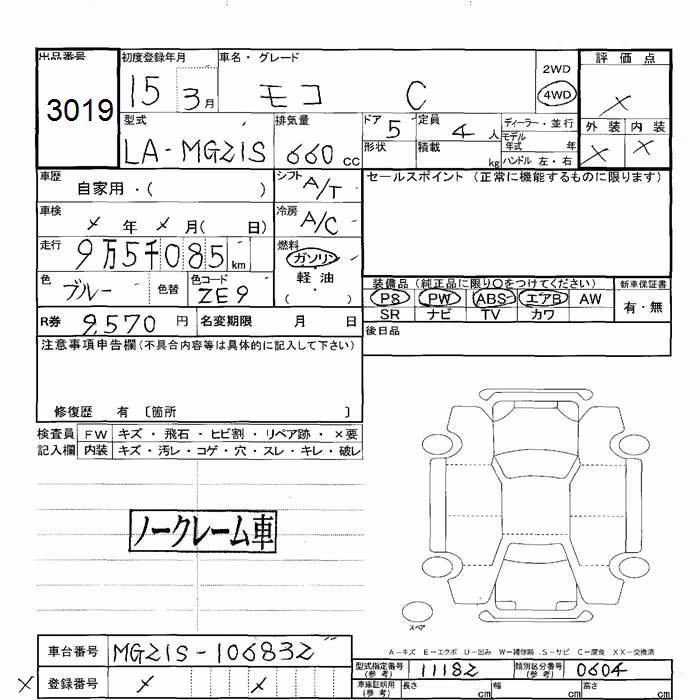 出品番号 初度登録年月 車名・グレード 評価点
3019 15 3月 モコ C 2WD 4WD ×
型式 排気量 ドア 5 定員 4人 ディーラー・並行 外装 内装
LA-MG21S 660cc 形状 積載 kg モデル年式 年 × ×
ハンドル 左・右
車歴 自家用・( ) シフト A/T セールスポイント (正常に機能するものに限ります)
車検 × 年 × 月( 日) 冷房 A/C
走行 9万5千085km 燃料 ガソリン
軽油
( ・ )
色 ブルー 色替 色コード ZE9 装備品 (純正品に限り〇をつけてください) 新車保証書
PS PW ABS エアB AW 有・無
R券 9,570円 名変期限 月 日 SR ナビ TV カワ
後日品
注意事項申告欄(不具合内容等は具体的に記入して下さい)
修復歴 有 〔箇所 〕
検査員 FW キズ・飛石・ヒビ割・リペア跡・×要
記入欄 内装 キズ・汚レ・コゲ・穴・スレ・キレ・破レ
ノークレーム車
スペア
A-キズ E-エクボ U-凹み W-補修跡 S-サビ C-腐食 XX-交換済
車台番号 MG21S-106832
型式指定番号(参考) 11182 類別区分番号(参考) 0604
× 登録番号 × ×
車庫証明用(参考) 長さ cm 幅 cm 高さ cm